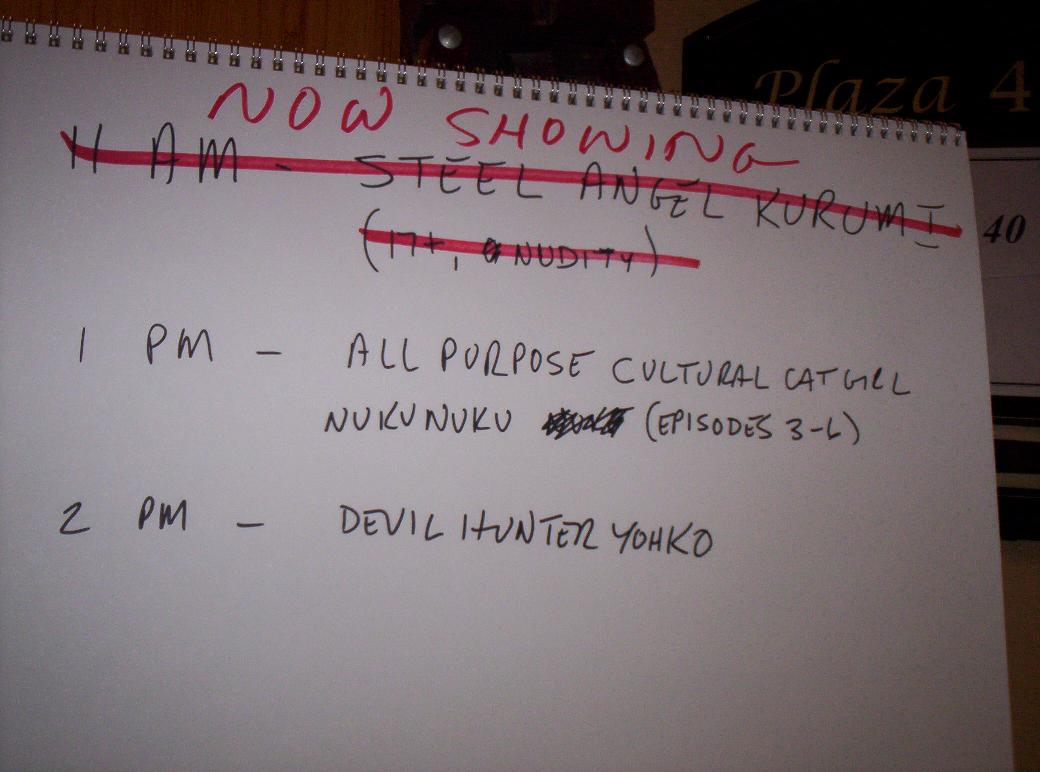 Plaza 4
NOW SHOWING
11 AM - STEEL ANGEL KURUMI
(17+, NUDITY)
40
1 PM - ALL PURPOSE CULTURAL CATGIRL
NUKUNUKU (EPISODES 3-6)
2 PM - DEVIL HUNTER YOHKO